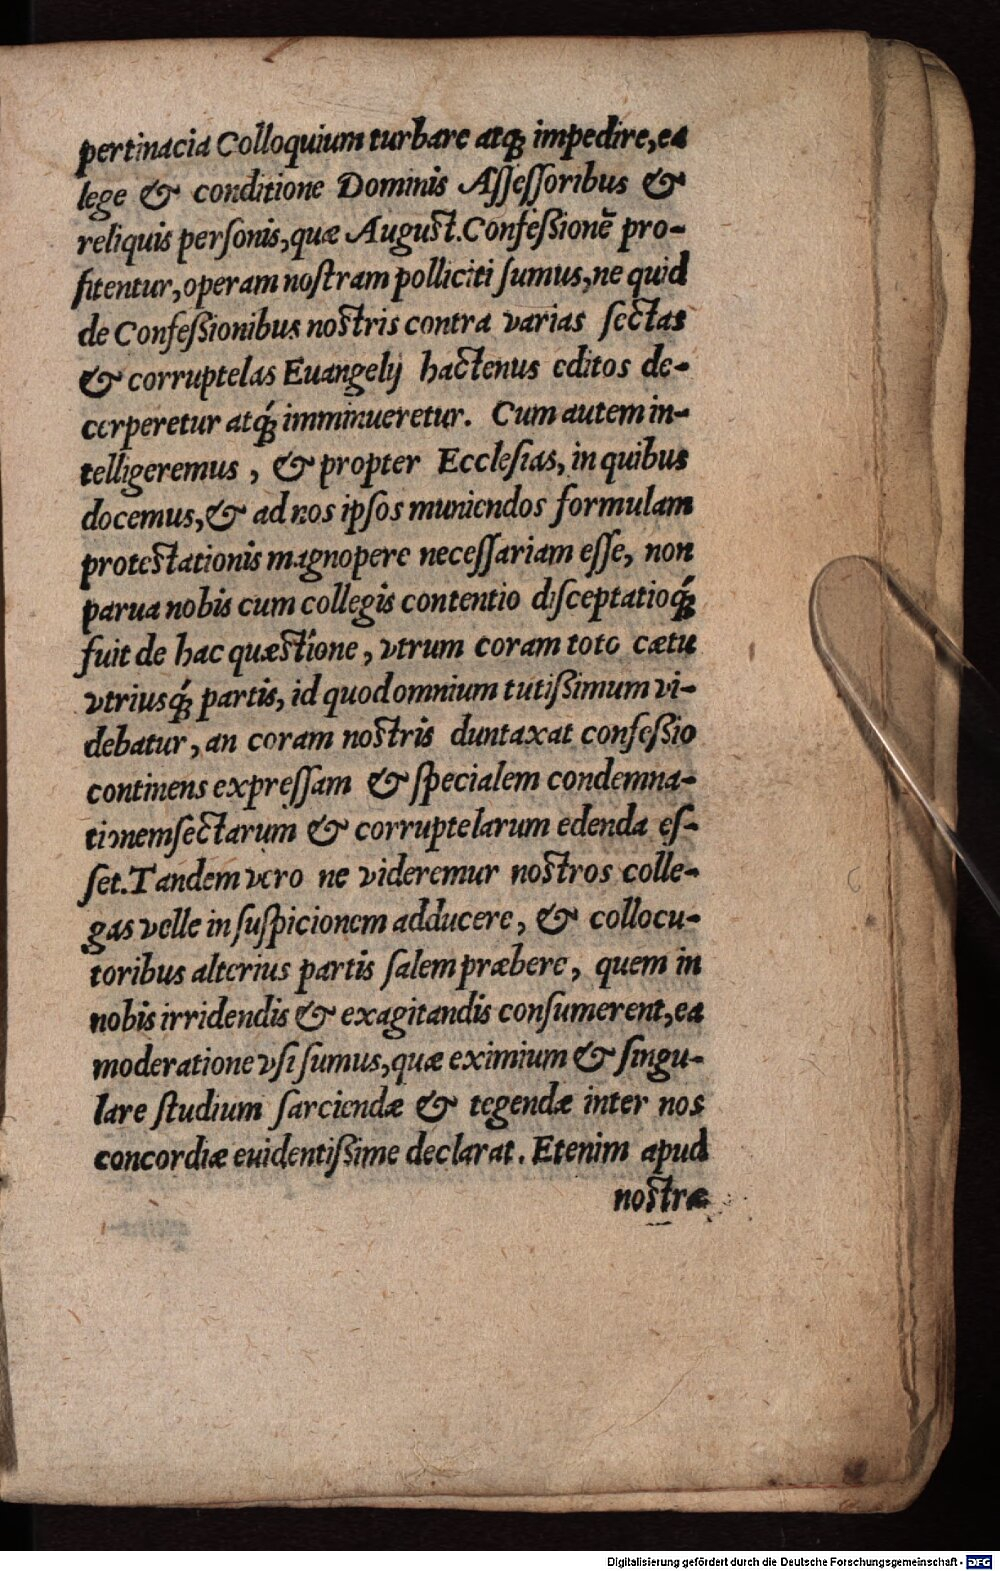 pertinacia Colloquium turbare atq́; impedire, ea
lege & conditione Dominis Aſſeſſoribus &
reliquis perſonis, quæ August. Confeßionẽ pro-
fitentur, operam noſtram polliciti ſumus, ne quid
de Confeßionibus nostris contra varias ſectas
& corruptelas Euangelij hactenus editos de-
cerperetur atq́; imminueretur. Cum autem in-
telligeremus, & propter Eccleſias, in quibus
docemus, & ad nos ipſos muniendos formulam
protestationis magnopere neceſſariam eſſe, non
parua nobis cum collegis contentio diſceptatioq́;
fuit de hac quæstione, vtrum coram toto cætu
vtriusq́; partis, id quod omnium tutißimum vi-
debatur, an coram nostris duntaxat confeßio
continens expreſſam & ſpecialem condemna-
tionem ſectarum & corruptelarum edenda eſ-
ſet. Tandem vero ne videremur nostros colle-
gas velle in ſuſpicionem adducere, & collocu-
toribus alterius partis ſalem præbere, quem in
nobis irridendis & exagitandis conſumerent, ea
moderatione vſi ſumus, quæ eximium & ſingu-
lare ſtudium ſarciendæ & tegendæ inter nos
concordiæ euidentißime declarat. Etenim apud
nostræ
Digitalisierung gefördert durch die Deutsche Forschungsgemeinschaft - DFG